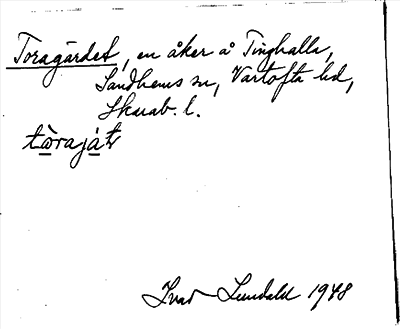 Toragärdet, en åker å Tinghalla,
Sandhems sn, Vartofta hd,
Skarab. l.
tὰrajá̠t
Ivar Lundahl 1948